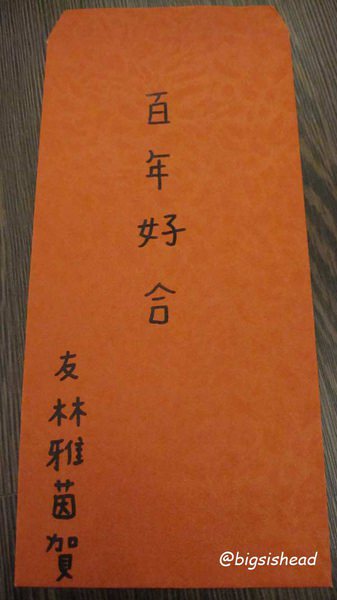 百年好合
友林雅茵賀
@bigsishead